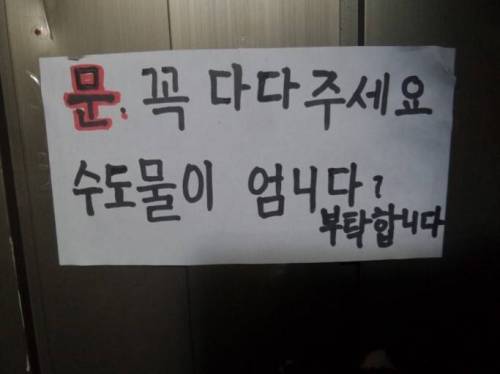 문. 꼭 다다주세요
수도물이 엄니다,
부탁합니다